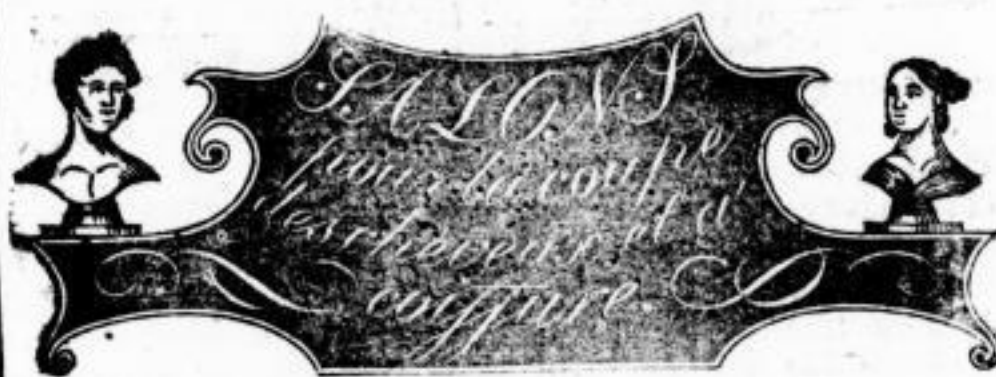 SALONS
pour la coupe
des cheveux et d
coiffure